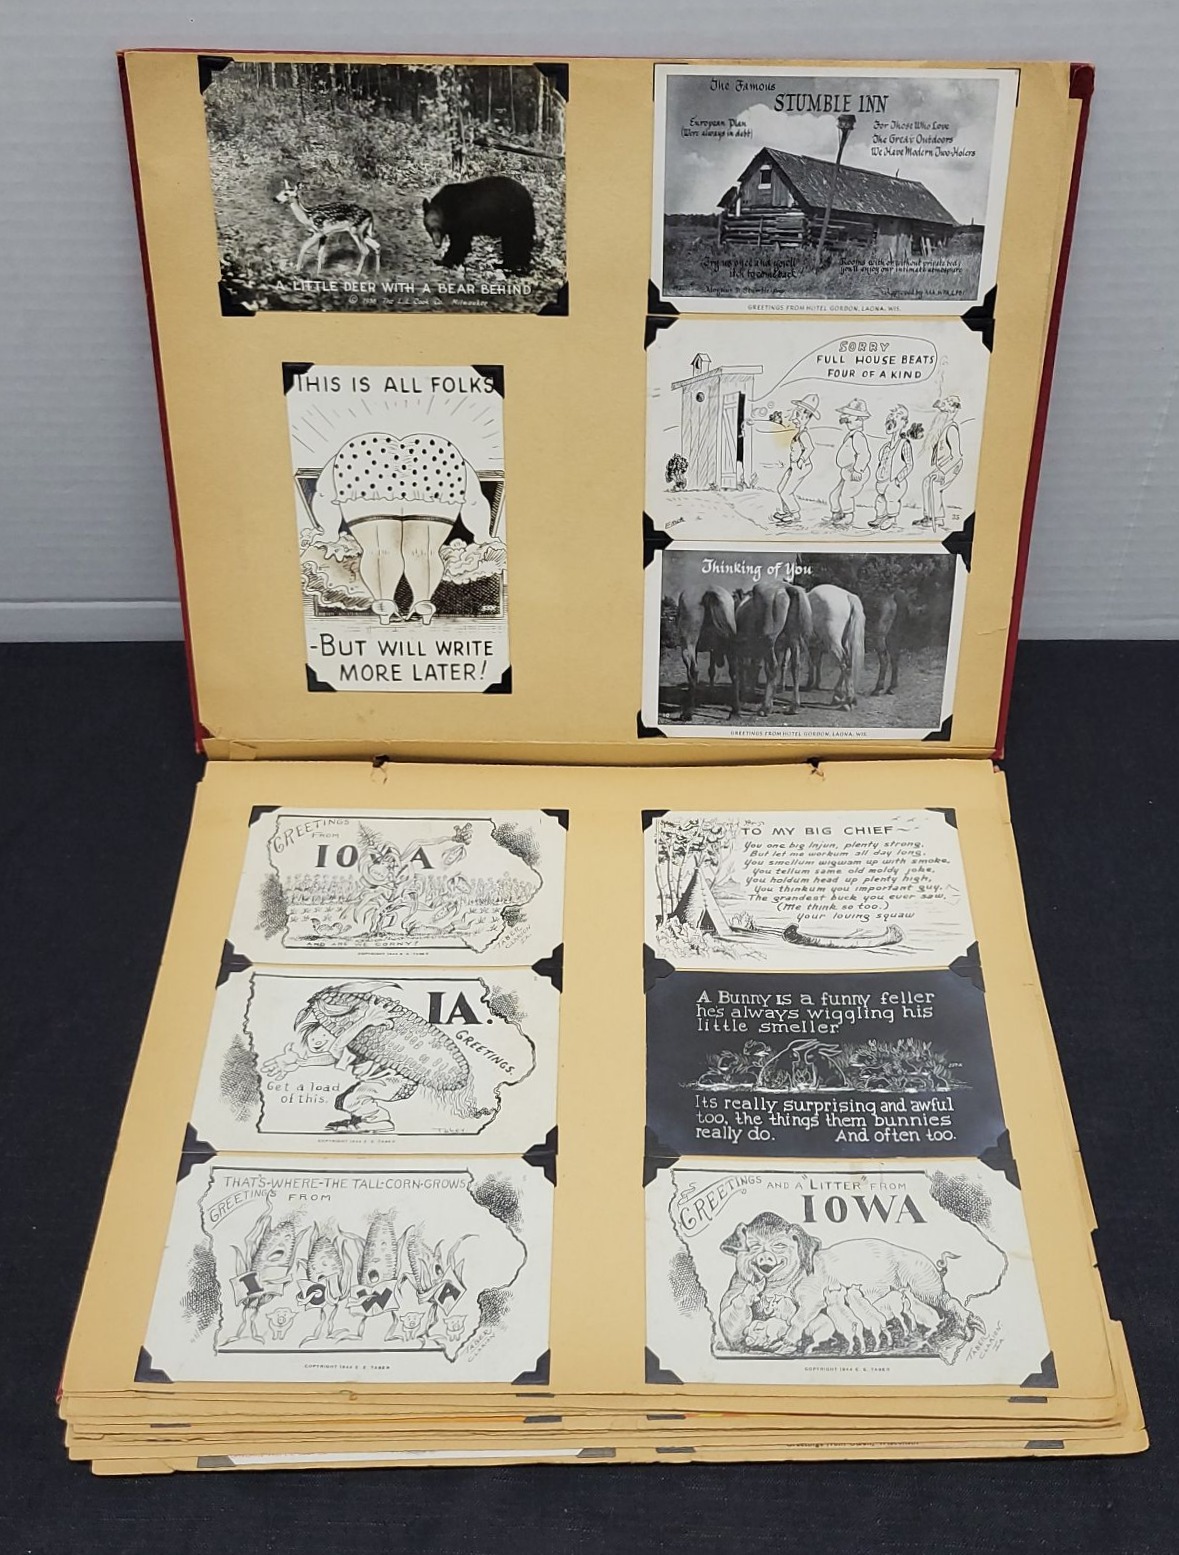 A LITTLE DEER WITH A BEAR BEHIND
© 1938 The L.L. Cook Co. Milwaukee
THIS IS ALL FOLKS
-BUT WILL WRITE
MORE LATER!
The Famous
STUMBLE INN
European Plan
(Were always in debt)
For Those Who Love
The Great Outdoors
We Have Modern Two-Holers
Try us once and you'll
to come back!
Rooms with or without
you'll enjoy our intimate atmosphere
GREETINGS FROM HOTEL GORDON, LAONA, WIS.
SORRY
FULL HOUSE BEATS
FOUR OF A KIND
Thinking of You
GREETINGS FROM HOTEL GORDON, LAONA, WIS.
GREETINGS
FROM
IOWA
AND ARE WE CORNY!
COPYRIGHT 1944 E. S. TABER
IA.
GREETINGS.
Get a load
of this.
TABER.
COPYRIGHT 1944 E. S. TABER
THAT'S-WHERE-THE TALL-CORN-GROWS
GREETINGS FROM
IOWA
TABER
CLARION
COPYRIGHT 1944 E. S. TABER
TO MY BIG CHIEF
You one big Injun, plenty strong,
But let me workum all day long.
You smellum wigwam up with smoke,
You tellum same old moldy joke,
You holdum head up plenty high,
You thinkum you important guy.
The grandest buck you ever saw,
(Me think so too.)
Your loving squaw
A Bunny is a funny feller
he's always wiggling his
little smeller
Its really surprising and awful
too, the things them bunnies
really do. And often too.
GREETINGS AND A "LITTER" FROM
IOWA
TABER
CLARION
IA
COPYRIGHT 1944 E. S. TABER